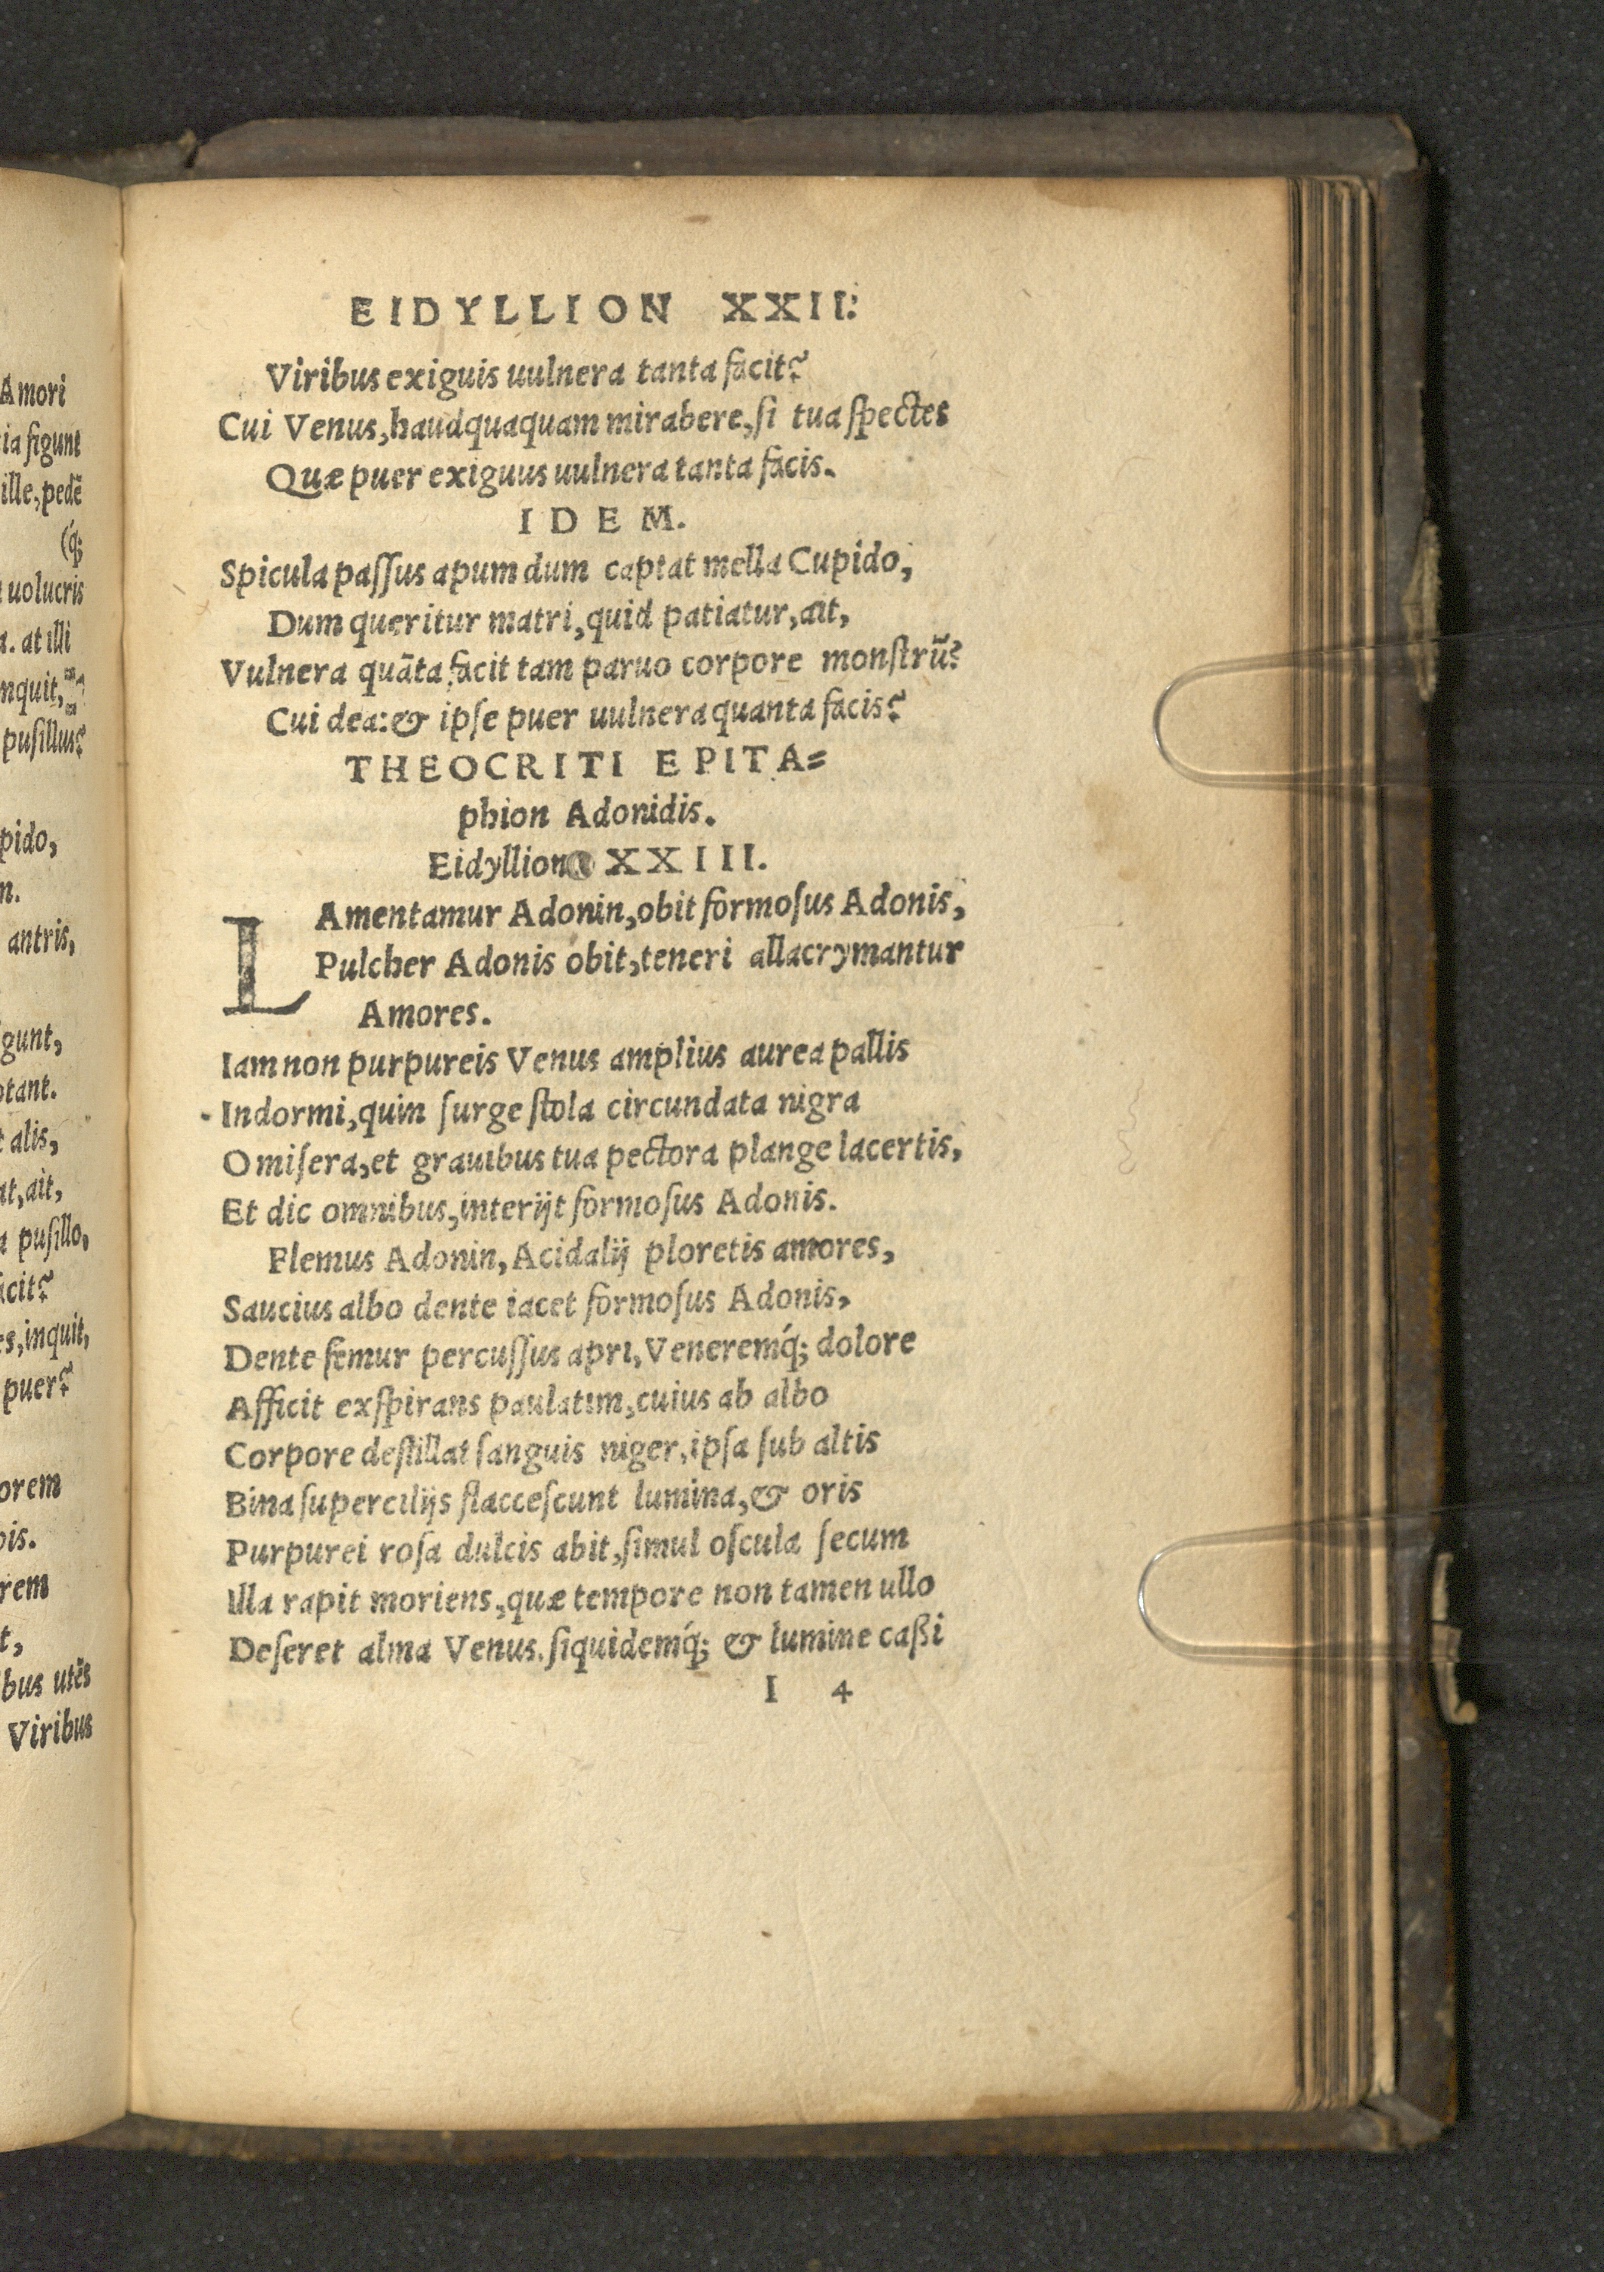 Amori
ia figunt
ille, pedē
(q́;
uolucris
a. at illi
inquit,
pusillus?
pido,
n.
antris,
gunt,
otant.
t alis,
at, ait,
a pusillo,
acit?
es, inquit,
puer?
orem
ois.
rem
t,
bus utēs
Viribus
EIDYLLION XXII.
Viribus exiguis uulnera tanta facit?
Cui Venus, haudquaquam mirabere, si tua spectes
Quæ puer exiguus uulnera tanta facis.
IDEM.
Spicula passus apum dum captat mella Cupido,
Dum queritur matri, quid patiatur, ait,
Vulnera quāta facit tam paruo corpore monstrū?
Cui dea: & ipse puer uulnera quanta facis?
THEOCRITI EPITA=
phion Adonidis.
Eidyllion XXIII.
LAmentamur Adonin, obit formosus Adonis,
Pulcher Adonis obit, teneri allacrymantur
Amores.
Iam non purpureis Venus amplius aurea pallis
Indormi, quin surge stola circundata nigra
O misera, et grauibus tua pectora plange lacertis,
Et dic omnibus, interijt formosus Adonis.
Flemus Adonin, Acidalij ploretis amores,
Saucius albo dente iacet formosus Adonis,
Dente femur percussus apri, Veneremq́; dolore
Afficit exspirans paulatim, cuius ab albo
Corpore destillat sanguis niger, ipsa sub altis
Bina supercilijs flaccescunt lumina, & oris
Purpurei rosa dulcis abit, simul oscula secum
Illa rapit moriens, quæ tempore non tamen ullo
Deseret alma Venus. siquidemq́; & lumine caßi
I 4